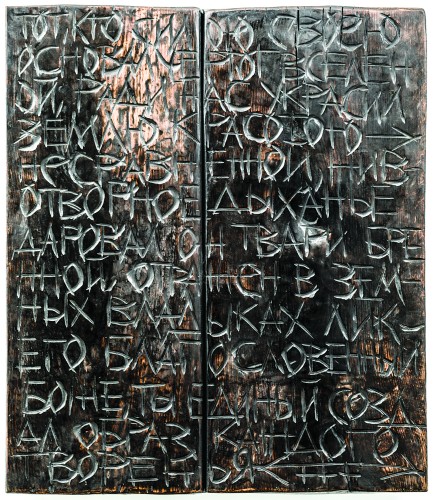 ТОТ, КТО СИЛОЮ СВОЕЮ
ОСНОВАЛ ЧЕРТОГ ВСЕЛЕН
НОЙ, РАДИ НАС УКРАСИЛ
ЗЕМЛЮ КРАСОТОЮ
НЕСРАВНЕННОЙ, ЖИВ
ОТВОРНОЕ ДЫХАНЬЕ
ДАРОВАЛ ОН ТВАРИ БРЕ
ННОЙ ОТРАЖЕН В ЗЕМ
НЫХ ВЛАДЫКАХ ЛИК
ЕГО БЛАГОСЛОВЕННЫЙ
БОЖЕ, ТЫ ЕДИНЫЙ СОЗД
АЛ ОБРАЗ КАЖДОГО
ТВОРЕНЬЯ